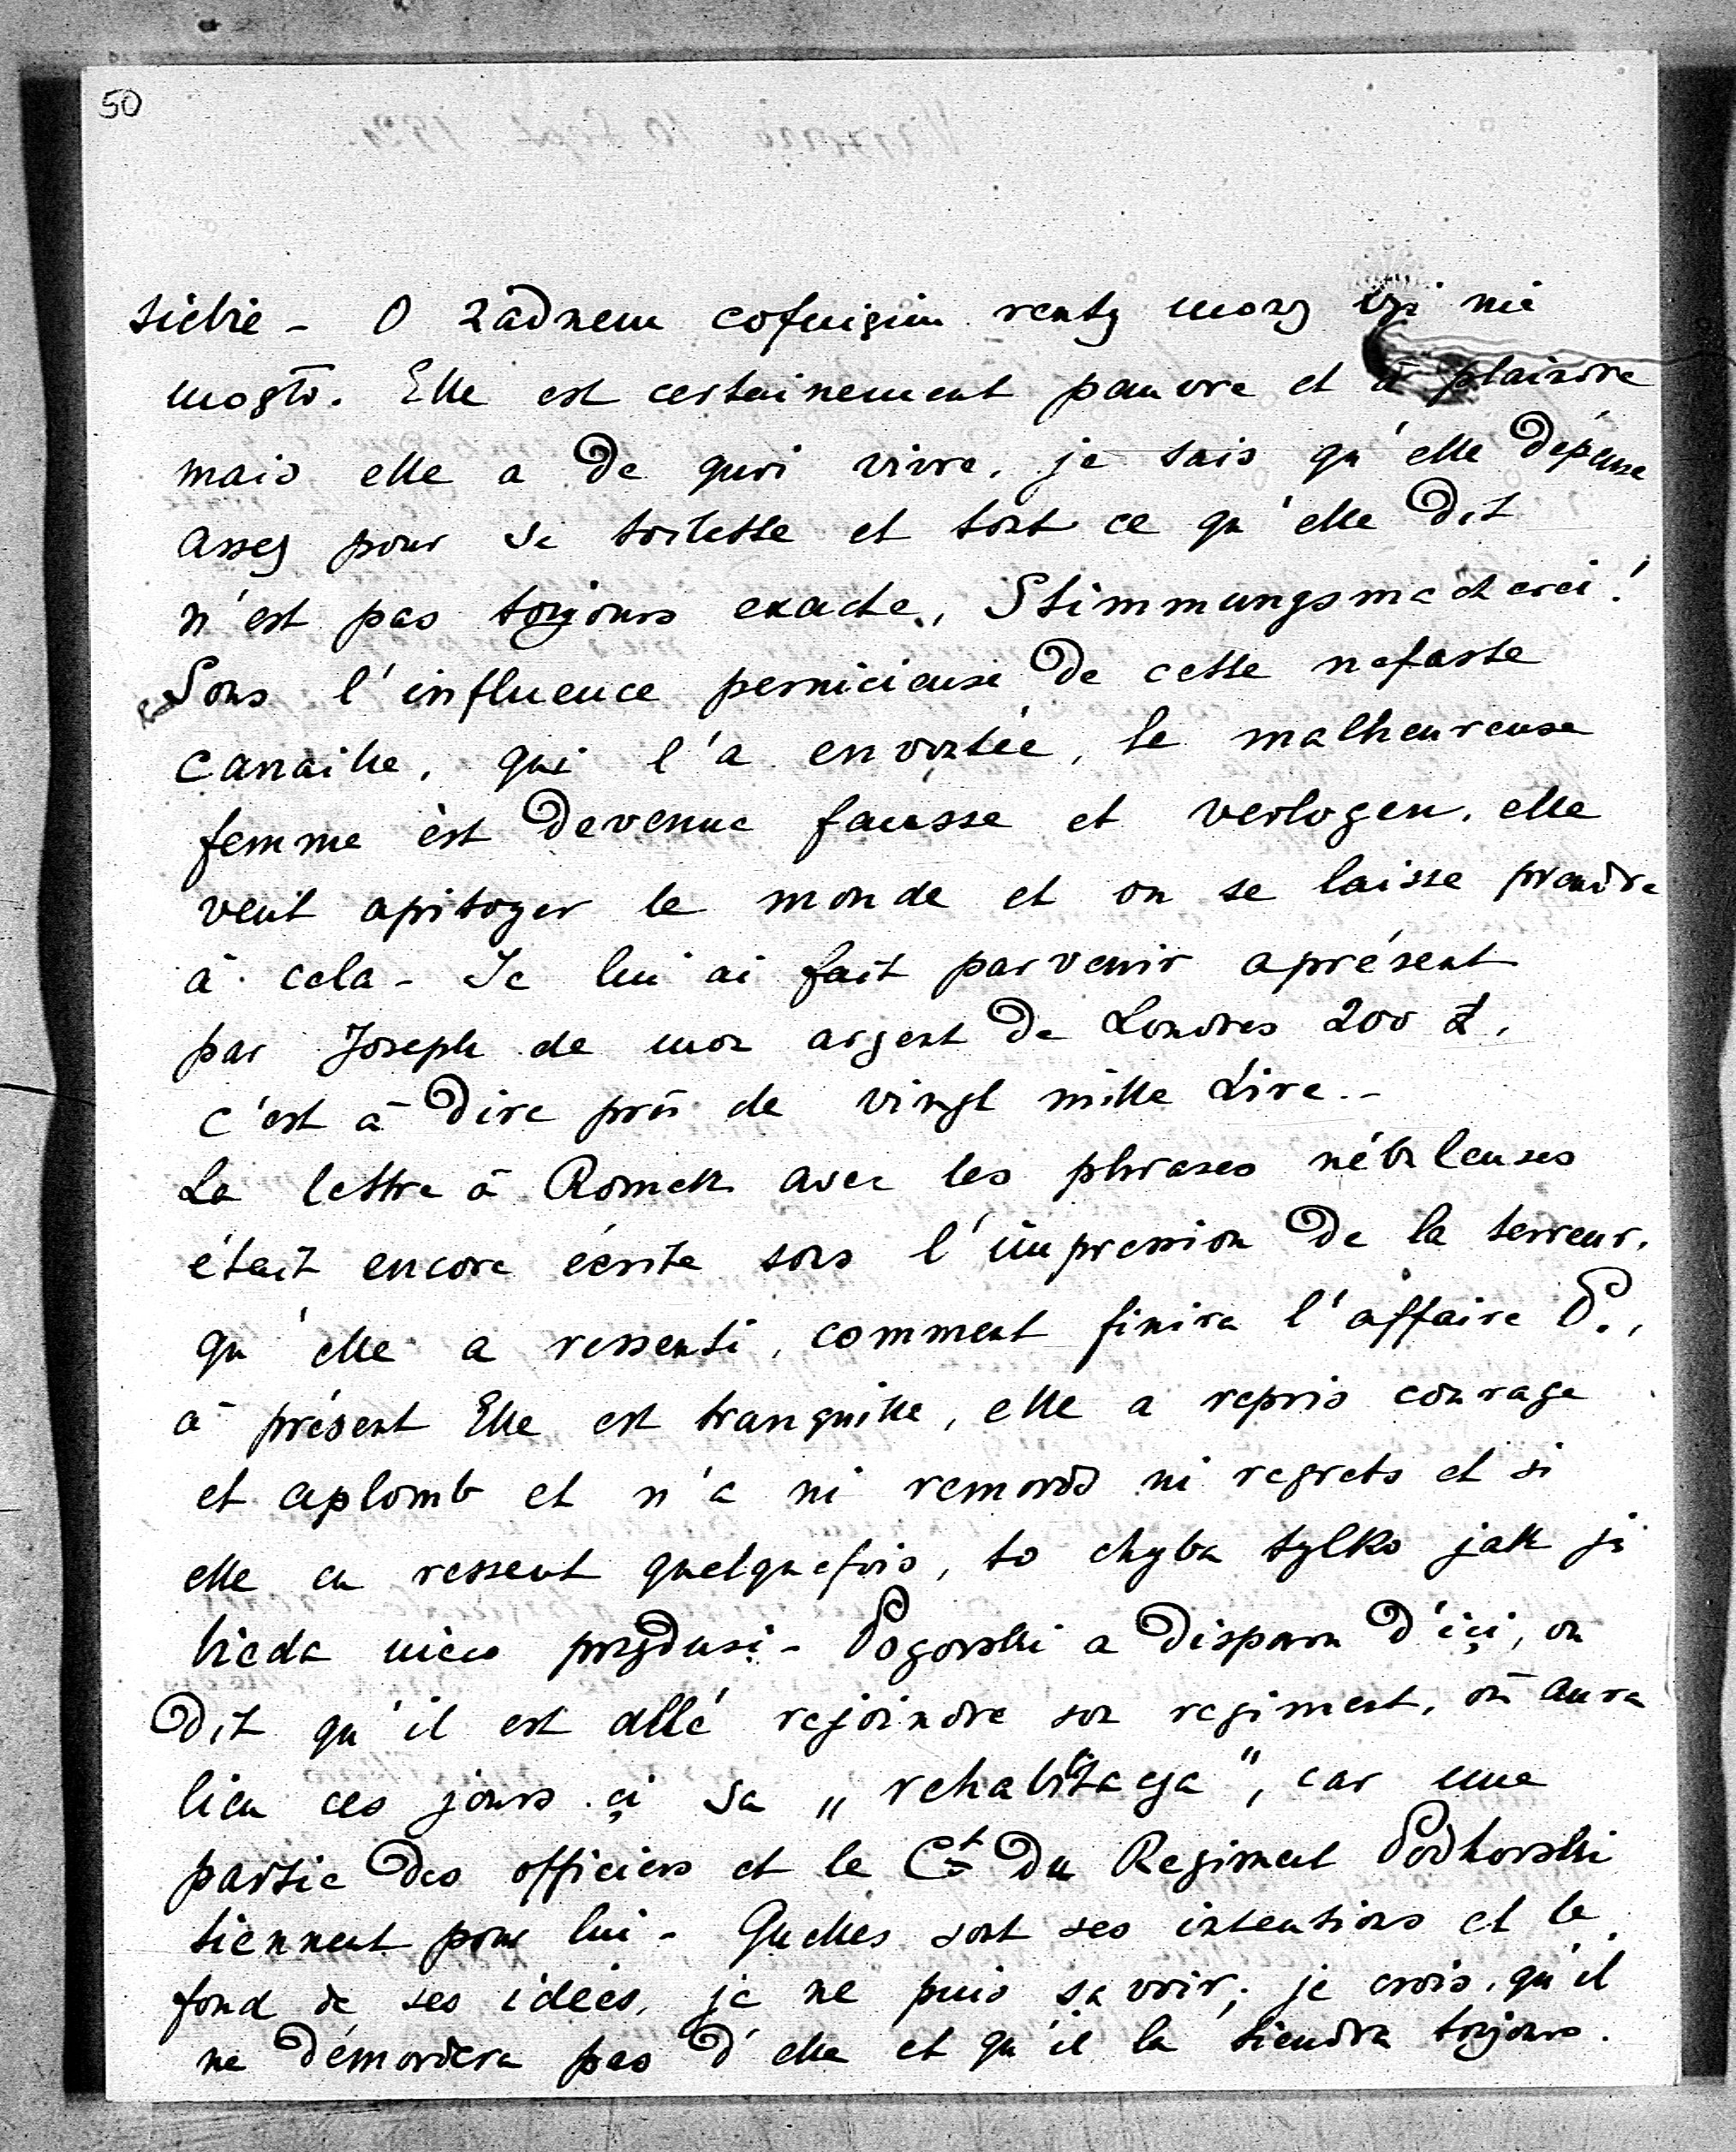 50
siebie - O żadnem cofnięciu renty mowy być nie
mogło. Elle est certainement pauvre et à plaindre
mais elle a de quoi vivre, je sais qu'elle dépense
assez pour sa toilette et tout ce qu'elle dit
n'est pas toujours exacte, Stimmungsmacherei!
Sous l'influence pernicieuse de cette nefaste
canaille, qui l'a envoutée, la malheureuse
femme est devenue fausse et verlogen, elle
veut apitoyer le monde et on se laisse prendre
à cela - Je lui ai fait parvenir aprésent
par Joseph de mon argent de Londres 200 £,
c'est à dire près de vingt mille Lire. -
La lettre à Romek avec les phrases nébuleuses
était encore écrite sous l'impression de la terreur,
qu'elle a ressenti, comment finira l'affaire P.,
à présent Elle est tranquille, elle a repris courage
et aplomb et n'a ni remords ni regrets et si
elle en ressent quelquefois, to chyba tylko jak ją
bieda nieco przydusi - Pogorski a disparu d'içi, on
dit qu'il est allé rejoindre son regiment, où aura
lieu ces jours çi sa „rehabilitacja", car une
partie des officiers et le Ct du Regiment Podhorski
tiennent pour lui - Quelles sont ses intentions et le
fond de ses idées, je ne puis savoir; je crois, qu'il
ne démordera pas d'elle et qu'il la tiendra toujours.